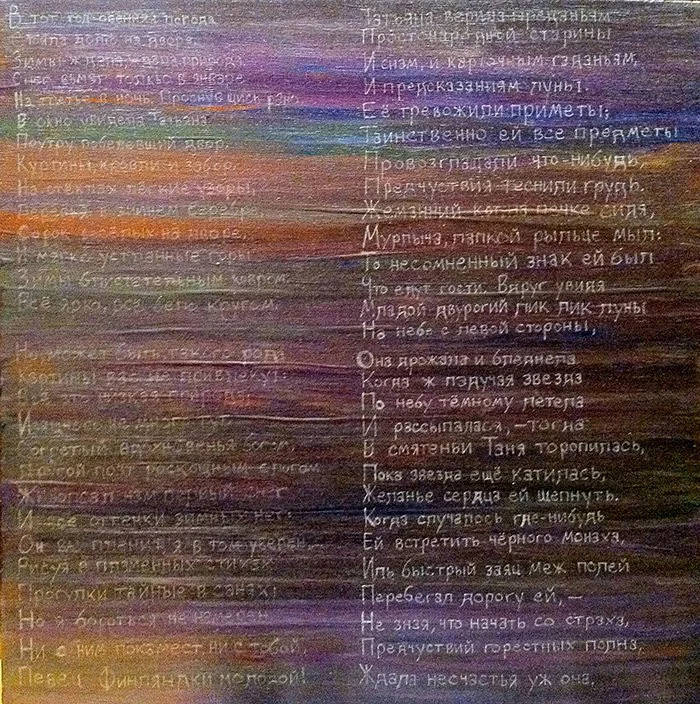 В тот год осенняя погода
Стояла долго на дворе,
Зимы ждала, ждала природа.
Снег выпал только в январе
На третье в ночь. Проснувшись рано,
В окно увидела Татьяна
Поутру побелевший двор,
Куртины, кровли и забор,
На стёклах лёгкие узоры,
Деревья в зимнем серебре,
Сорок весёлых на дворе,
И мягко устланные горы
Зимы блистательным ковром.
Всё ярко, всё бело кругом.
Но, может быть, такого рода
Картины вас не привлекут:
Всё это низкая природа;
Изящного не
Согретый вдохновенья богом,
Другой поэт роскошным слогом
Живописал нам первый снег
И все оттенки зимних нег;
Он вас пленит, я в том уверен,
Рисуя в пламенных стихах
Прогулки тайные в санях;
Но я бороться не намерен
Ни с ним покамест, ни с тобой,
Певец Финляндки молодой!
Татьяна верила преданьям
Простонародной старины
И снам, и карточным гаданьям,
И предсказаниям луны.
Её тревожили приметы;
Таинственно ей все предметы
Провозглашали что-нибудь,
Предчуствия теснили грудь.
Жеманный кот на печке сидя,
Мурлыча, лапкой рыльце мыл:
То несомненный знак ей был
Что едут гости. Вдруг увидя
Младой двурогий лик лик луны
На небе с левой стороны,
Она дрожала и бледнела.
Когда ж падучая звезда
По небу тёмному летела
И рассыпалася, – тогда
В смятеньи Таня торопилась,
Пока звезда ещё катилась,
Желанье сердца ей шепнуть.
Когда случалось где-нибудь
Ей встретить чёрного монаха,
Иль быстрый заяц меж полей
Перебегал дорогу ей, –
Не зная, что начать со страха,
Предчуствий горестных полна,
Ждала несчастья уж она.